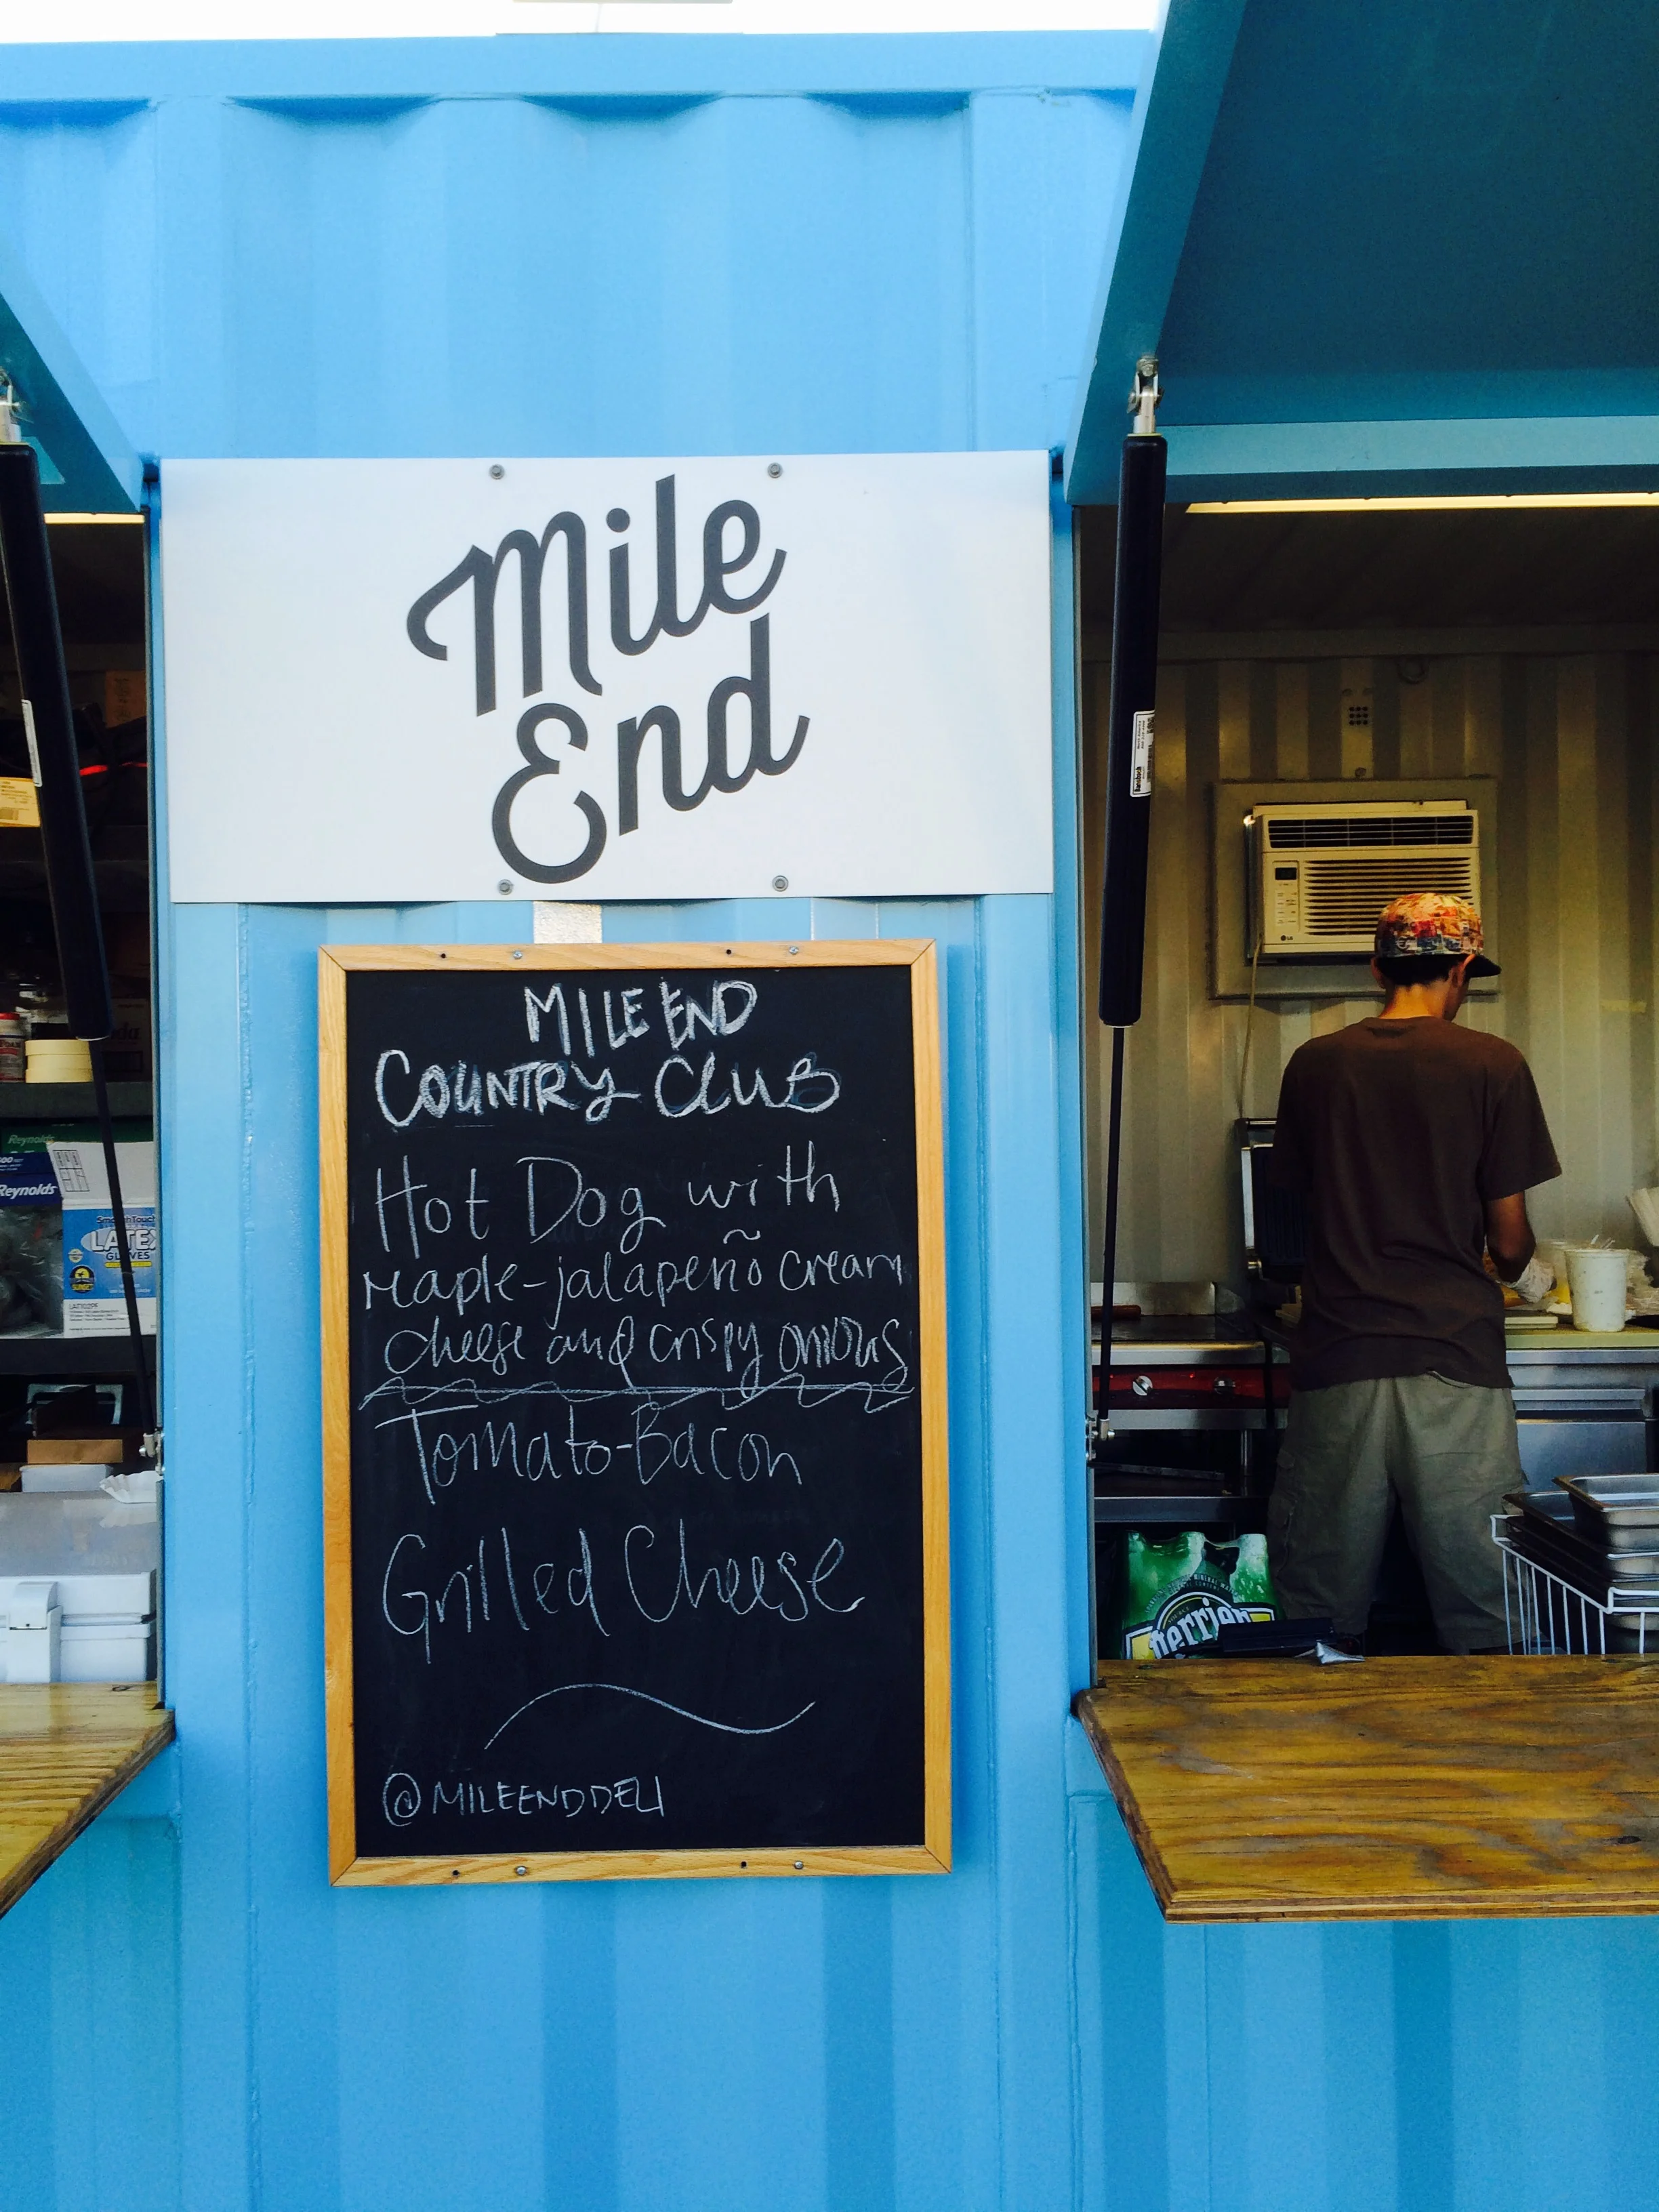 Mile
End
MILE END
COUNTRY CLUB
Hot Dog with
Maple-jalapeño cream
cheese and crispy onions
Tomato-Bacon
Grilled Cheese
@MILEENDDELI
Reynolds
Reynolds
LATEX
GLOVES
LG
perrier